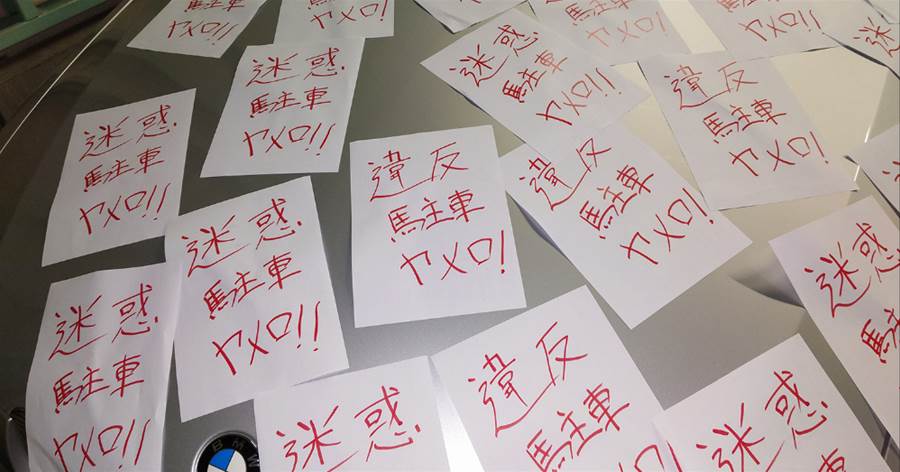 駐車
ヤメロ!!
ヤメロ!
駐車
ヤメロ!
ヤメロ!!
迷惑
駐車
ヤメロ!!
迷惑
駐車
ヤメロ!!
違反
駐車
ヤメロ!
迷惑
駐車
ヤメロ!!
違反
駐車
ヤメロ!
違反
駐車
ヤメロ!
迷惑
駐車
ヤメロ!!
迷惑
駐車
迷惑
駐車
ヤメロ!!
迷惑
違反
駐車
迷惑
BMW